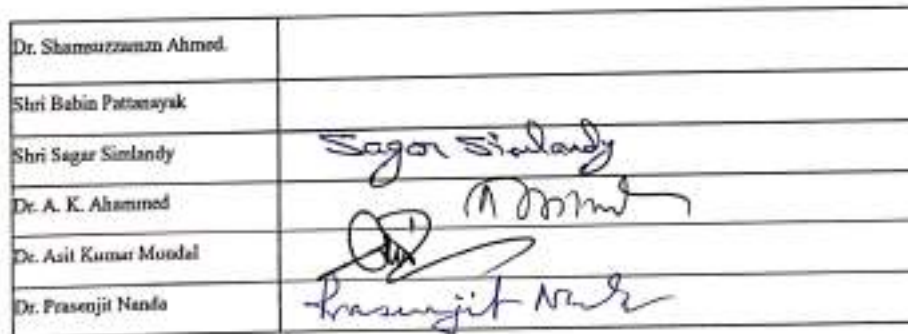 Dr. Shamsuzzamzn Ahmed.
Shri Babin Pattanayak
Shri Sagar Simlandy Sagar Simlandy
Dr. A. K. Ahammed
Dr. Asit Kumar Mondal
Dr. Prasenjit Nanda Prasenjit Nanda